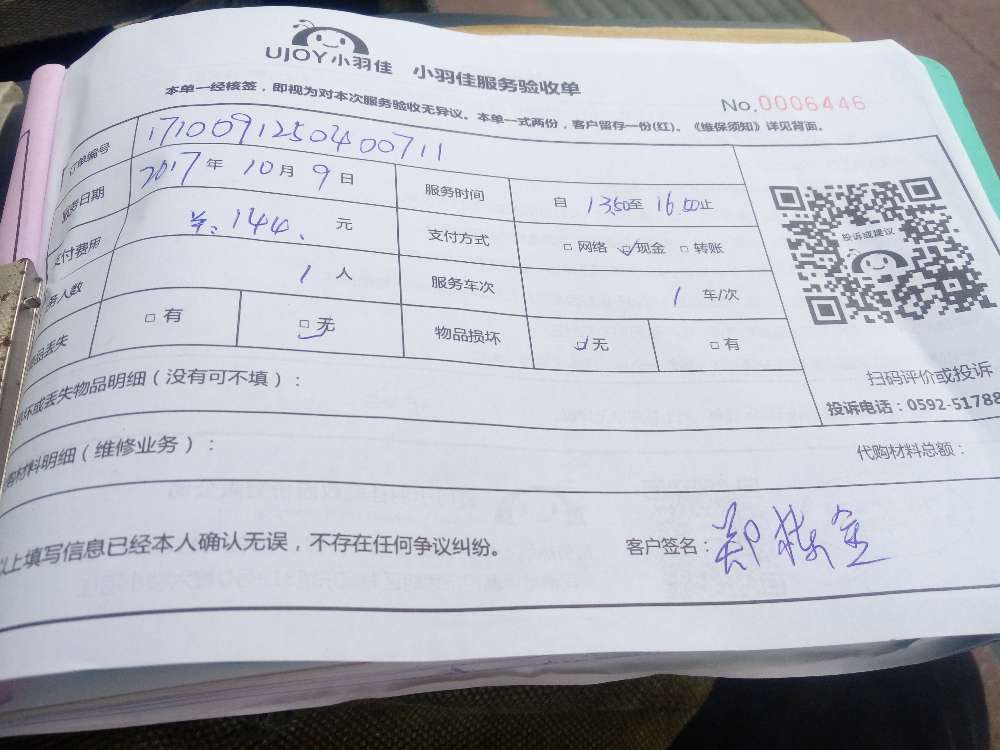 UJOY小羽佳 小羽佳服务验收单
No.0006446
本单一经核签，即视为对本次服务验收无异议。本单一式两份，客户留存一份(红)。《维保须知》详见背面。
订单编号 1710091250400711
日期 2017年10月9日 服务时间 自 13:50至 16:50止
支付费用 ¥:144. 元 支付方式 □网络 ☑现金 □转账
人数 1人 服务车次 1 车/次
丢失 □有 ☑无 物品损坏 ☑无 □有
投诉或建议
扫码评价或投诉
投诉电话：0592-51788
坏或丢失物品明细（没有可不填）：
材料明细（维修业务）： 代购材料总额：
以上填写信息已经本人确认无误，不存在任何争议纠纷。 客户签名：郑 金